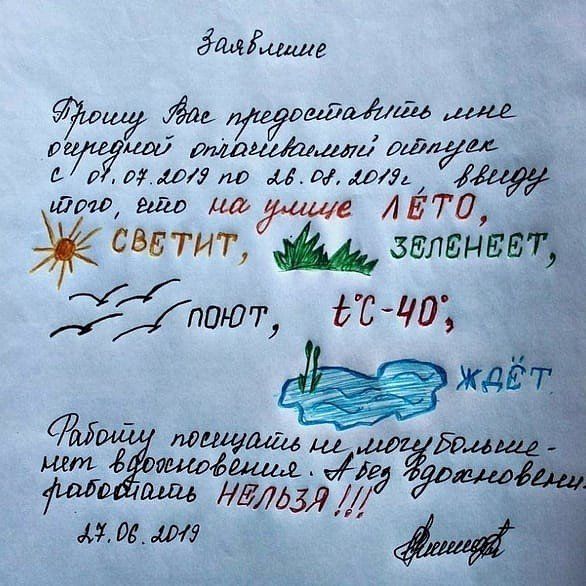 Заявление
Прошу Вас предоставить мне
очередной оплачиваемый отпуск
с 01.07.2019 по 26.08.2019г ввиду
того, что на улице ЛЕ́ТО,
СВЕТИТ, ЗЕЛЕНЕЕТ,
ПОЮТ, t°C-40°,
ЖДЁТ
Работу посещать не могу больше-
нет вдохновения. А без вдохновени
работать НЕЛЬЗЯ!!!
27.06.2019